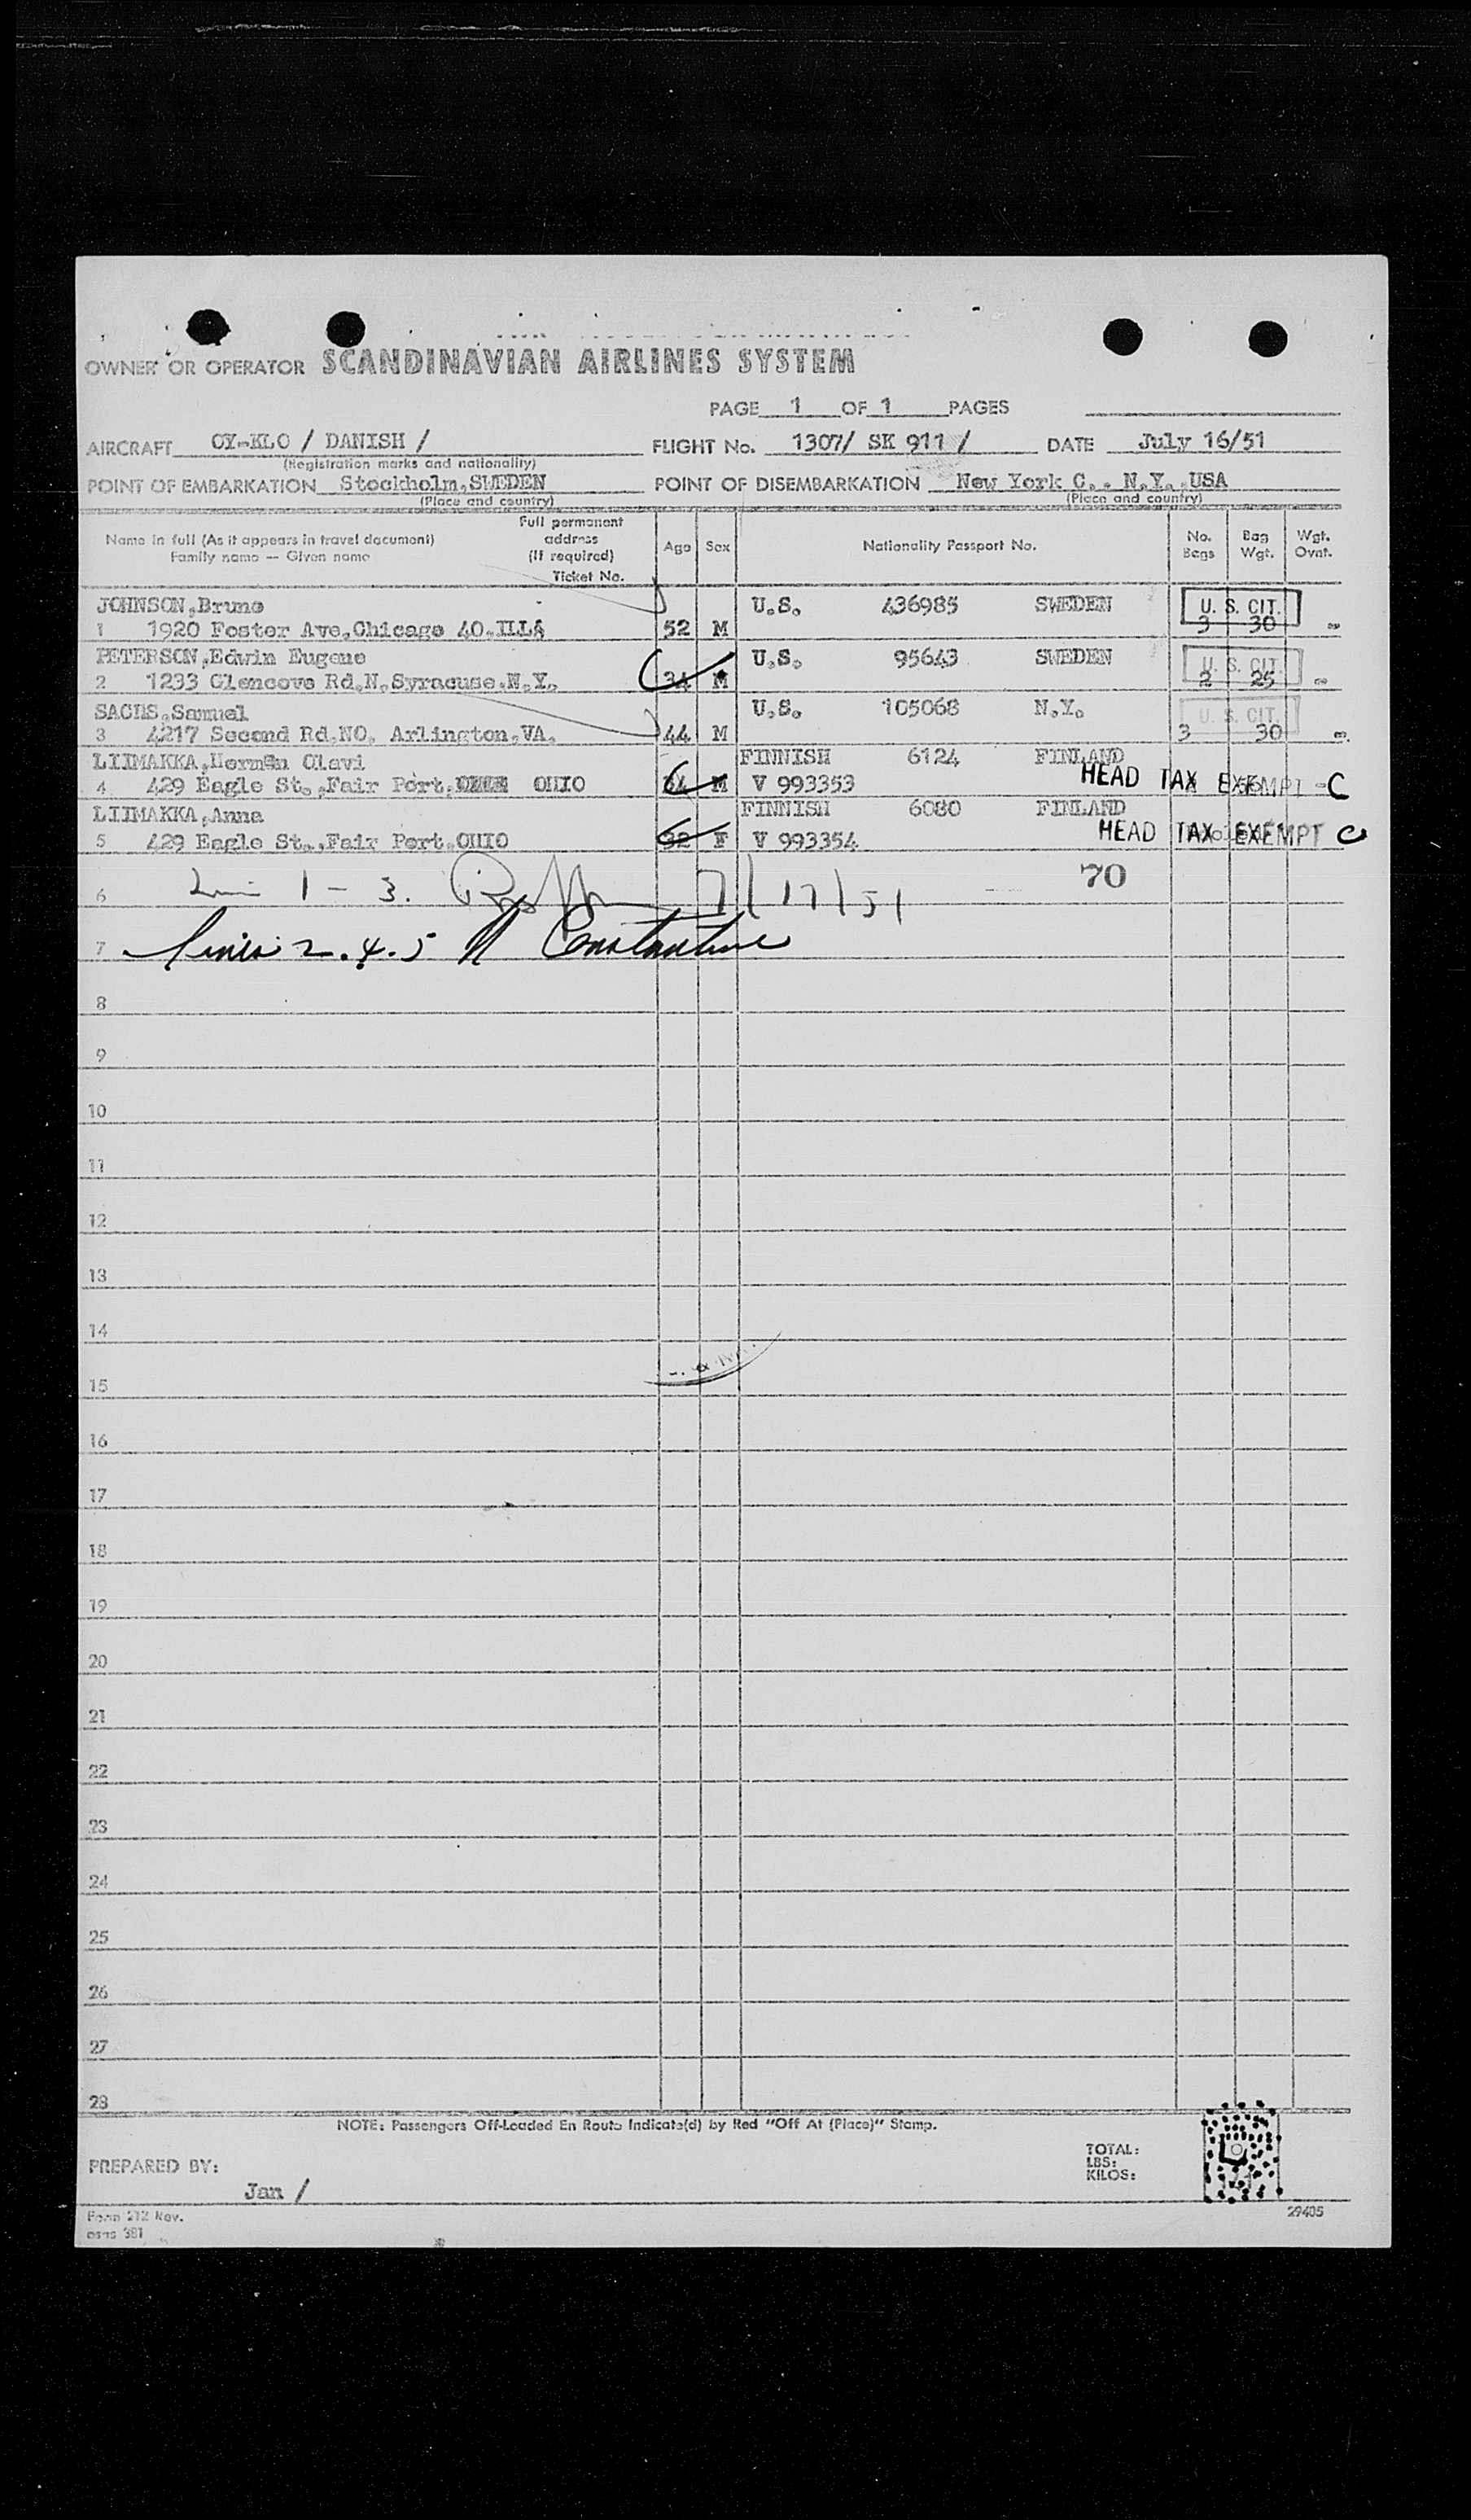 OWNER OR OPERATOR SCANDINAVIAN AIRLINES SYSTEM
PAGE 1 OF 1 PAGES
AIRCRAFT OY-KLO / DANISH / FLIGHT No. 1307/ SK 911 / DATE July 16/51
(Registration marks and nationality)
POINT OF EMBARKATION Stockholm,SWEDEN POINT OF DISEMBARKATION New York C., N.Y. USA
(Place and country) (Place and country)
Name in full (As it appears in travel document) Family name — Given name Full permanent address (If required) Ticket No. Age Sex Nationality Passport No. No. Bags Bag Wgt. Wgt. Ovnt.
JOHNSON,Bruno U.S. 436985 SWEDEN U. S. CIT.
1 1920 Foster Ave,Chicago 40.ILL 52 M 3 30
PETERSON,Edwin Eugene U.S. 95643 SWEDEN U. S. CIT.
2 1233 Glencove Rd.N.Syracuse.N.Y. 34 M 2 25
SACHS,Samuel U.S. 105068 N.Y. U. S. CIT.
3 4217 Second Rd.NO. Arlington,VA. 44 M 3 30
LIIMAKKA,Herman Olavi FINNISH 6124 FINLAND
4 429 Eagle St.,Fair Port. OHIO M V 993353 HEAD TAX EXEMPT - C
LIIMAKKA,Anna FINNISH 6080 FINLAND
5 429 Eagle St.,Fair Port.OHIO F V 993354 HEAD TAX EXEMPT C
6 1 - 3. 7/17/51 70
7 Lines 2.4.5 Constantine
8
9
10
11
12
13
14
15
16
17
18
19
20
21
22
23
24
25
26
27
28
NOTE: Passengers Off-Loaded En Route Indicate(d) by Red "Off At (Place)" Stamp.
TOTAL:
LBS:
KILOS:
PREPARED BY:
Jan /
Form 212 Rev. 29405